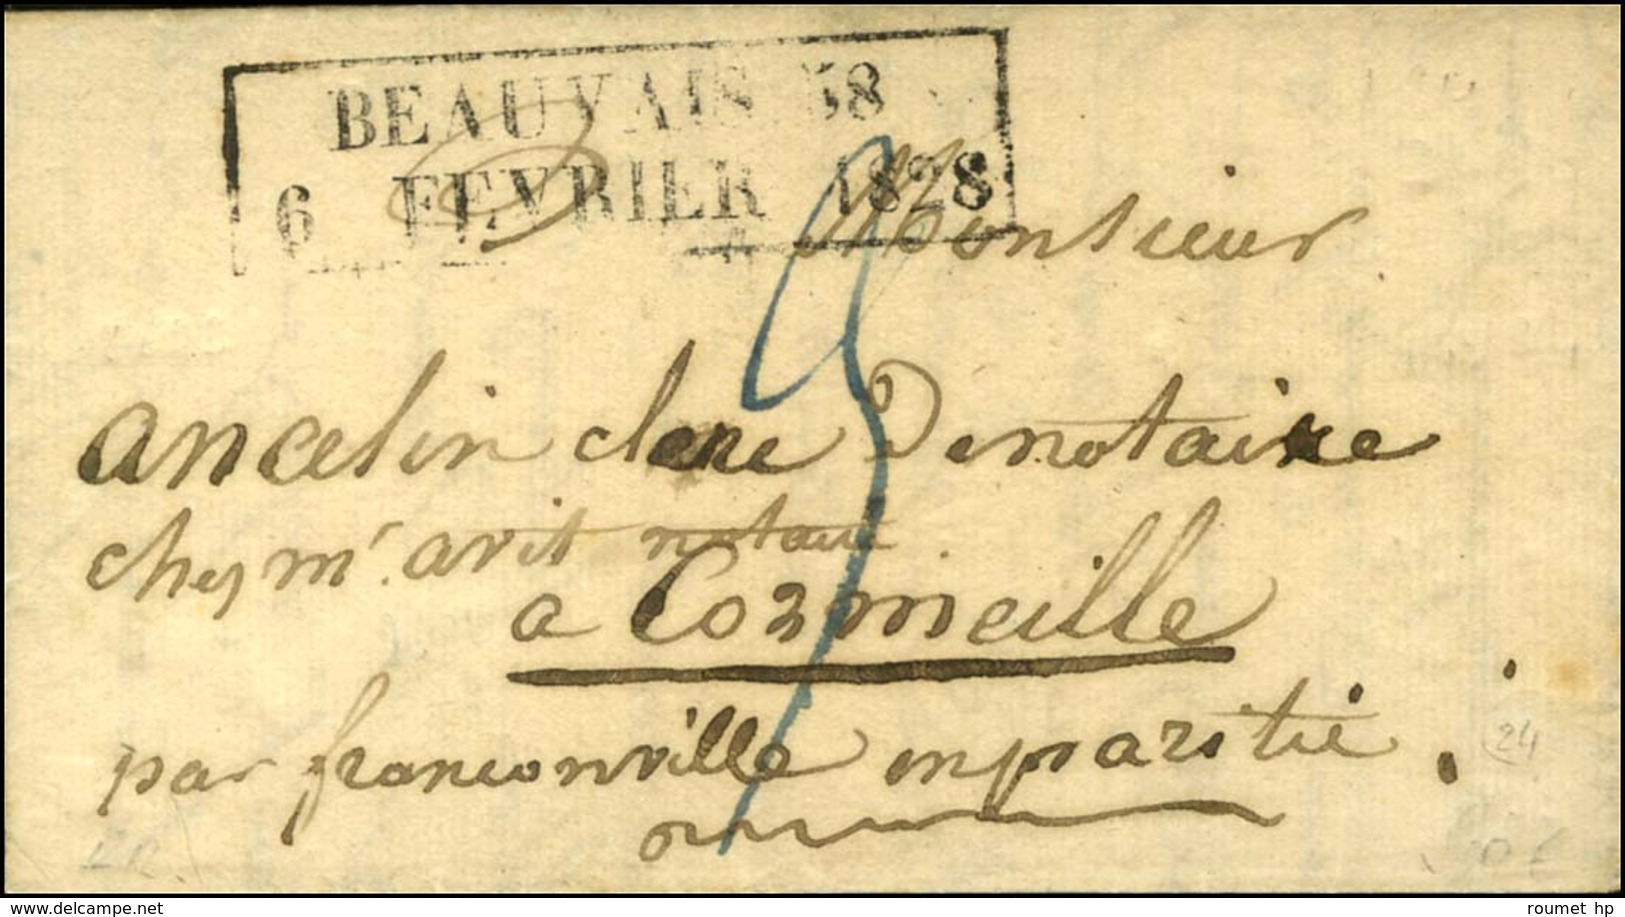 BEAUVAIS 58
6 FEVRIER 1828
Monsieur
ancelin clere Denotaire
chez mr. avit notaire
a Cormeille
par franconville
24
www.delcampe.net
roumet hp